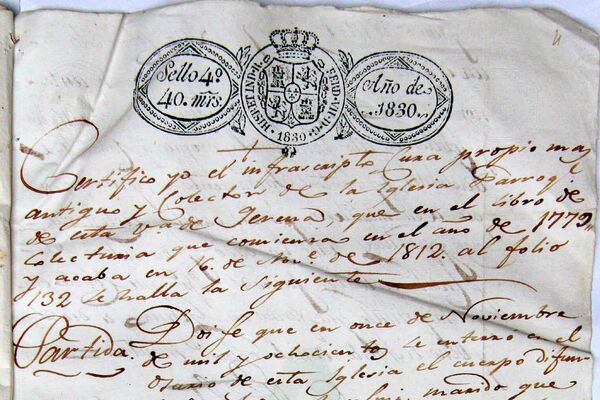 Sello 4º
40. mrs.
HISP. ET IND. R.
FERD. VII. D. G.
1830
Año de
1830.
Certifico yo el infrascripto Cura propio mas
antiguo y Colector de la Iglesia Parroql
de esta va de Gerena, que en el libro de
Colecturia que comienza en el año de 1779,
y acaba en 16. de de 1812. al folio
132 se halla la siguiente
Partida. Doi fe que en once de Noviembre
de mil y ochocientos se enterro en el
de esta Iglesia el cuerpo difun-
marido que